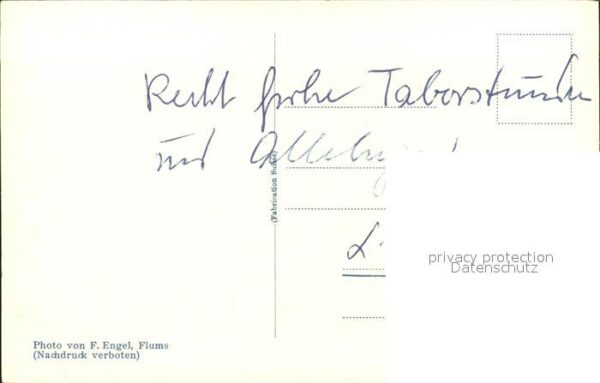 Recht frohe Taborstunden
und
(Fabrication Suisse)
privacy protection
Datenschutz
Photo von F. Engel, Flums
(Nachdruck verboten)